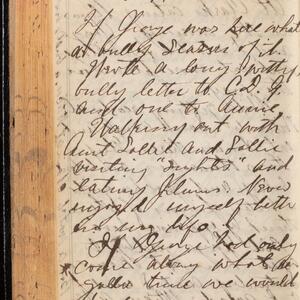 If George was here what
a bully season of it.
Wrote a long spotty
bully letter to C.D.G.
and one to Annie.
Walking out with
Aunt Sallie and Sallie
visiting "sights" and
eating plums. Never
enjoyed myself better
in my life.
If George had only
come along what a
gala time we would